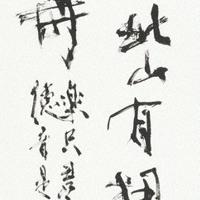 北山有
樂只君
德音是